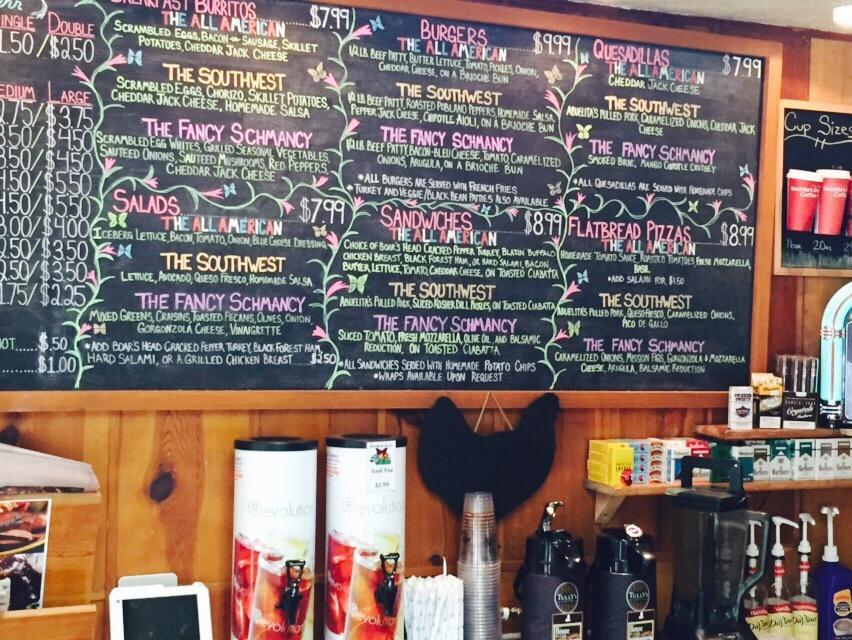 INGLE DOUBLE
1.50/$2.50
EDIUM LARGE
$3.75
$4.50
$4.50
$5.50
$4.00
$3.50
$3.50
1.75/$2.25
$.50
$1.00
BREAKFAST BURRITOS $7.99
THE ALL AMERICAN
SCRAMBLED EGGS, BACON OR SAUSAGE, SKILLET
POTATOES, CHEDDAR JACK CHEESE
THE SOUTHWEST
SCRAMBLED EGGS, CHORIZO, SKILLET POTATOES,
CHEDDAR JACK CHEESE, HOMEMADE SALSA
THE FANCY SCHMANCY
SCRAMBLED EGG WHITES, GRILLED SEASONAL VEGETABLES,
SAUTEED ONIONS, SAUTEED MUSHROOMS, RED PEPPERS,
CHEDDAR JACK CHEESE
SALADS $7.99
THE ALL AMERICAN
ICEBERG LETTUCE, BACON, TOMATO, ONION, BLUE CHEESE DRESSING
THE SOUTHWEST
LETTUCE, AVOCADO, QUESO FRESCO, HOMEMADE SALSA
THE FANCY SCHMANCY
MIXED GREENS, CRAISINS, TOASTED PECANS, OLIVES, ONION,
GORGONZOLA CHEESE, VINAIGRETTE
*ADD BOAR'S HEAD CRACKED PEPPER TURKEY, BLACK FOREST HAM,
HARD SALAMI, OR A GRILLED CHICKEN BREAST $2.50
BURGERS $9.99
THE ALL AMERICAN
1/2 LB BEEF PATTY, BUTTER LETTUCE, TOMATO, PICKLES, ONION,
CHEDDAR CHEESE, ON A BRIOCHE BUN
THE SOUTHWEST
1/2 LB BEEF PATTY, ROASTED POBLANO PEPPERS, HOMEMADE SALSA,
PEPPER JACK CHEESE, CHIPOTLE AIOLI, ON A BRIOCHE BUN
THE FANCY SCHMANCY
1/2 LB BEEF PATTY, BACON-BLEU CHEESE, TOMATO, CARAMELIZED
ONIONS, ARUGULA, ON A BRIOCHE BUN
*ALL BURGERS ARE SERVED WITH FRENCH FRIES
*TURKEY AND VEGGIE/BLACK BEAN PATTIES ALSO AVAILABLE
SANDWICHES $8.99
THE ALL AMERICAN
CHOICE OF BOAR'S HEAD CRACKED PEPPER TURKEY, BLAZIN BUFFALO
CHICKEN BREAST, BLACK FOREST HAM, OR HARD SALAMI, BACON
BUTTER LETTUCE, TOMATO, CHEDDAR CHEESE, ON TOASTED CIABATTA
THE SOUTHWEST
ABUELITA'S PULLED PORK, SLICED KOSHER DILL PICKLES, ON TOASTED CIABATTA
THE FANCY SCHMANCY
SLICED TOMATO, FRESH MOZZARELLA, OLIVE OIL AND BALSAMIC
REDUCTION, ON TOASTED CIABATTA
*ALL SANDWICHES SERVED WITH HOMEMADE POTATO CHIPS
*WRAPS AVAILABLE UPON REQUEST
QUESADILLAS $7.99
THE ALL AMERICAN
CHEDDAR JACK CHEESE
THE SOUTHWEST
ABUELITA'S PULLED PORK, CARAMELIZED ONIONS, CHEDDAR JACK
CHEESE
THE FANCY SCHMANCY
SMOKED BRIE, MANGO CHIPOTLE CHUTNEY
*ALL QUESADILLAS ARE SERVED WITH HOMEMADE CHIPS
FLATBREAD PIZZAS $8.99
THE ALL AMERICAN
HOMEMADE TOMATO SAUCE, ROASTED TOMATOES, FRESH MOZZARELLA,
BASIL
*ADD SALAMI FOR $1.50
THE SOUTHWEST
ABUELITA'S PULLED PORK, QUESO FRESCO, CARAMELIZED ONIONS,
PICO DE GALLO
THE FANCY SCHMANCY
CARAMELIZED ONIONS, MISSION FIGS, GORGONZOLA & MOZZARELLA
CHEESE, ARUGULA, BALSAMIC REDUCTION
Cup Sizes
Seattle's Best Coffee
Iced Tea
$2.99
Revolution
Revolution
TULLY'S
TULLY'S
Marlboro
DaVinci